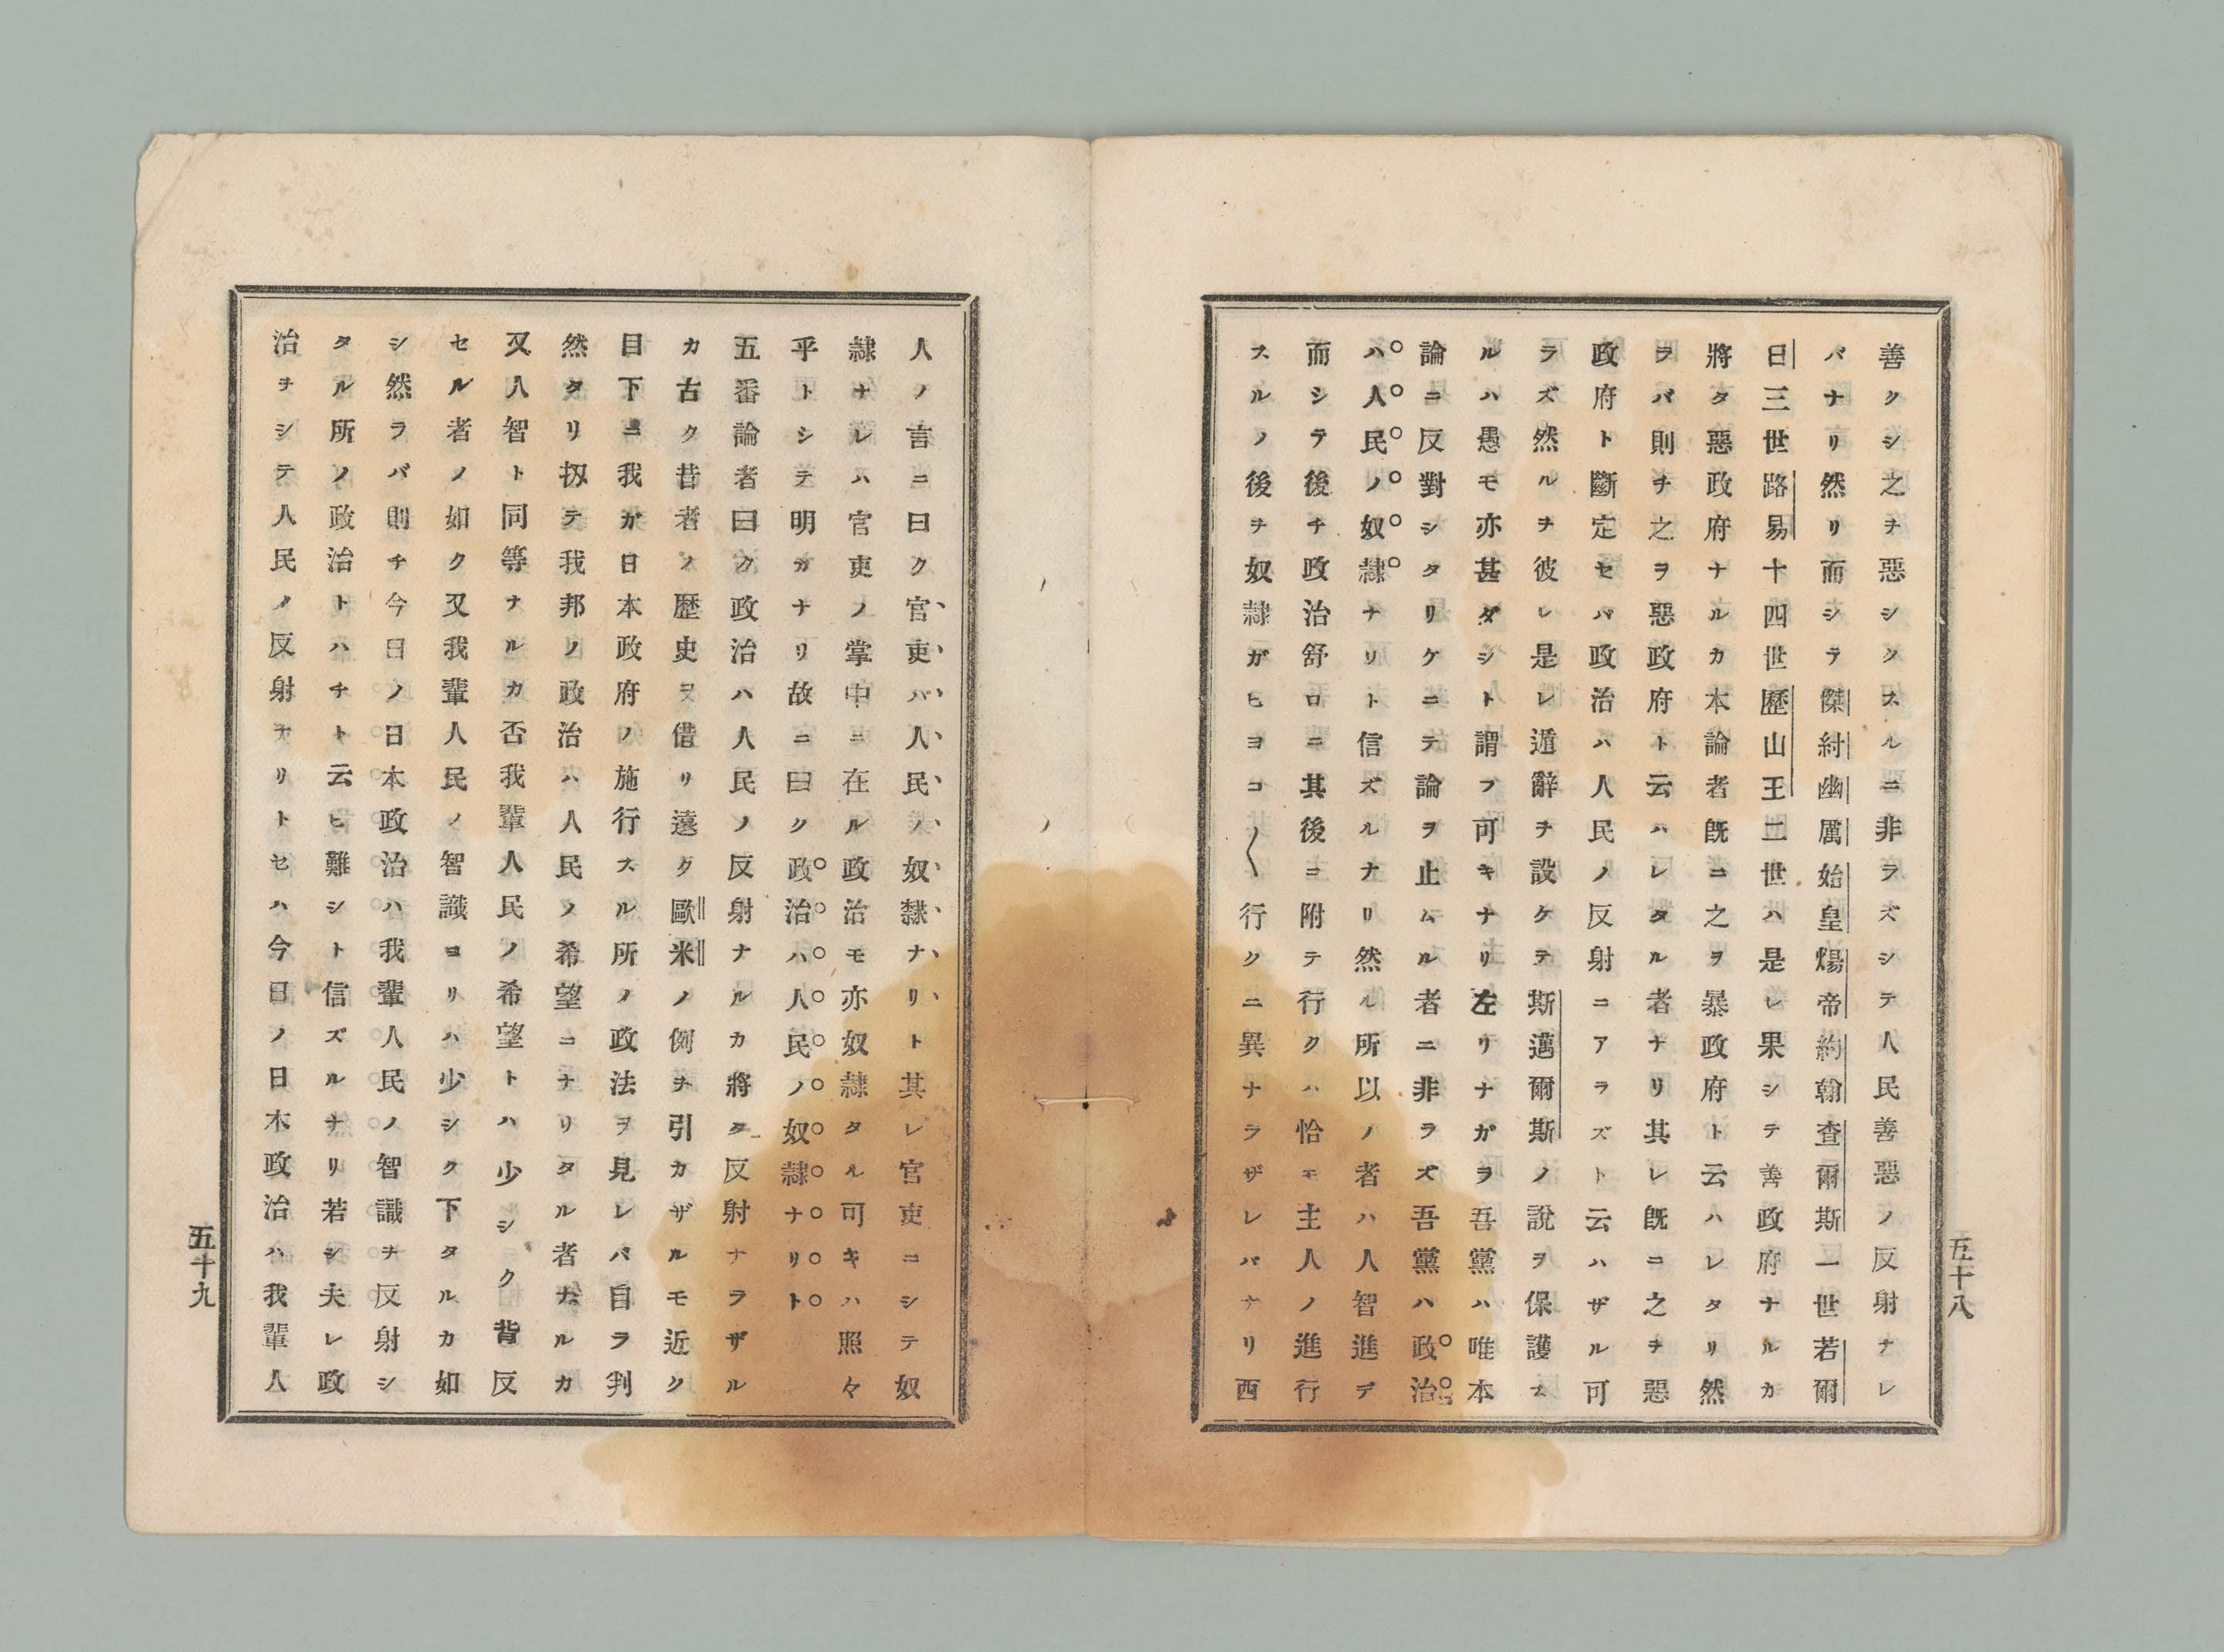 善クシ之ヲ惡シクスルニ非ラズシテ人民善惡ノ反射ナレ
バナリ然リ而シテ傑紂幽厲始皇煬帝約翰査爾斯一世若爾
日三世路易十四世歷山王二世ハ是レ果シテ善政府ナルカ
將タ惡政府ナルカ本論者既ニ之ヲ暴政府ト云ハレタリ然
ラバ則チ之ヲ惡政府ト云ハレタル者ナリ其レ既ニ之ヲ惡
政府ト斷定セバ政治ハ人民ノ反射ニアラズト云ハザル可
ラズ然ルヲ彼レ是レ遁辭ヲ設ケテ斯邁爾斯ノ說ヲ保護ナ
ルハ愚モ亦甚ダシト謂フ可キナリ左リナガラ吾黨ハ唯本
論ニ反對シタリケニテ論ヲ止ムル者ニ非ラズ吾黨ハ政治
ハ人民ノ奴隷ナリト信ズルナリ然ル所以ノ者ハ人智進デ
而シテ後チ政治舒ロニ其後ヨ附テ行クハ恰モ主人ノ進行
スルノ後ヲ奴隷ガヒヨコ〱行クニ異ナラザレバナリ西
五十八
人ノ言ニ曰ク官吏ハ人民ノ奴隸ナリト其レ官吏ニシテ奴
隷ナレハ官吏ノ掌中ニ在ル政治モ亦奴隷タル可キハ照々
乎トシテ明カナリ故ニ曰ク政治ハ人民ノ奴隷ナリト
五番論者曰ク政治ハ人民ノ反射ナルカ將タ反射ナラザル
カ古ク昔者ノ歷史ヲ借リ遠ク歐米ノ例ヲ引カザルモ近ク
目下ニ我ガ日本政府ノ施行スル所ノ政法ヲ見レバ自ラ判
然タリ扨テ我邦ノ政治ハ人民ノ希望ニナリタル者ナルカ
又人智ト同等ナルカ否我輩人民ノ希望トハ少シク背反
セル者ノ如ク又我輩人民ノ智識ヨリハ少シク下タルカ如
シ然ラバ則チ今日ノ日本政治ハ我輩人民ノ智識ヲ反射シ
タル所ノ政治トハチト云ヒ難シト信ズルナリ若シ夫レ政
治ヲシテ人民ノ反射ナリトセハ今日ノ日本政治ハ我輩人
五十九